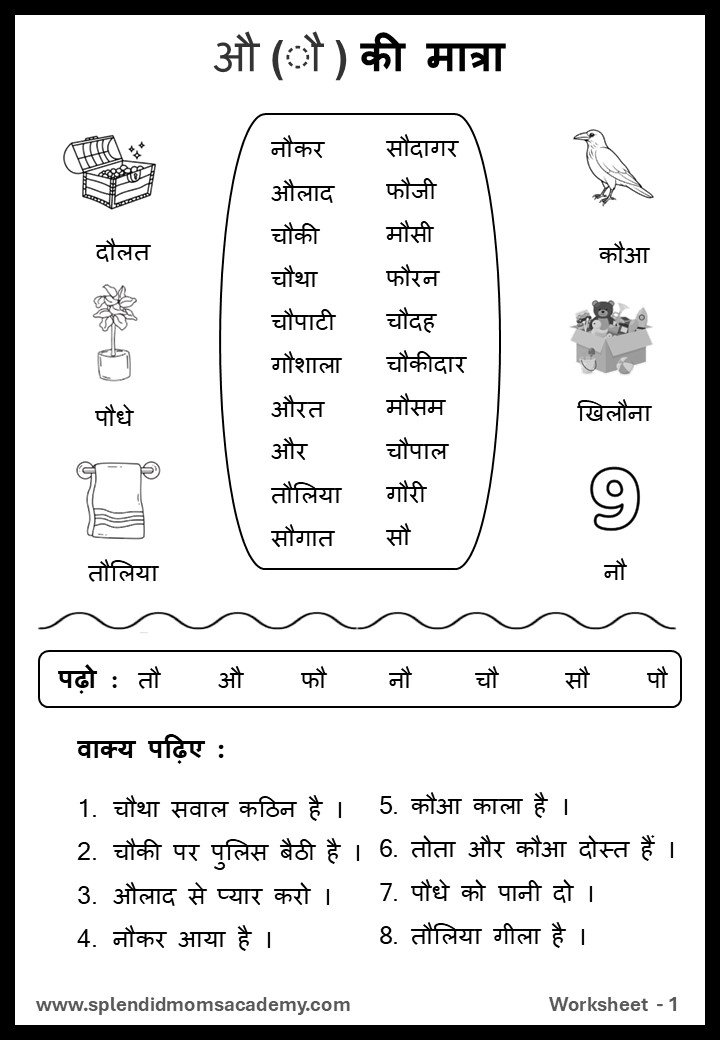 औ (ौ ) की मात्रा
दौलत
पौधे
तौलिया
नौकर सौदागर
औलाद फौजी
चौकी मौसी
चौथा फौरन
चौपाटी चौदह
गौशाला चौकीदार
औरत मौसम
और चौपाल
तौलिया गौरी
सौगात सौ
कौआ
खिलौना
9
नौ
पढ़ो : तौ औ फौ नौ चौ सौ पौ
वाक्य पढ़िए :
1. चौथा सवाल कठिन है ।
2. चौकी पर पुलिस बैठी है ।
3. औलाद से प्यार करो ।
4. नौकर आया है ।
5. कौआ काला है ।
6. तोता और कौआ दोस्त हैं ।
7. पौधे को पानी दो ।
8. तौलिया गीला है ।
www.splendidmomsacademy.com Worksheet - 1